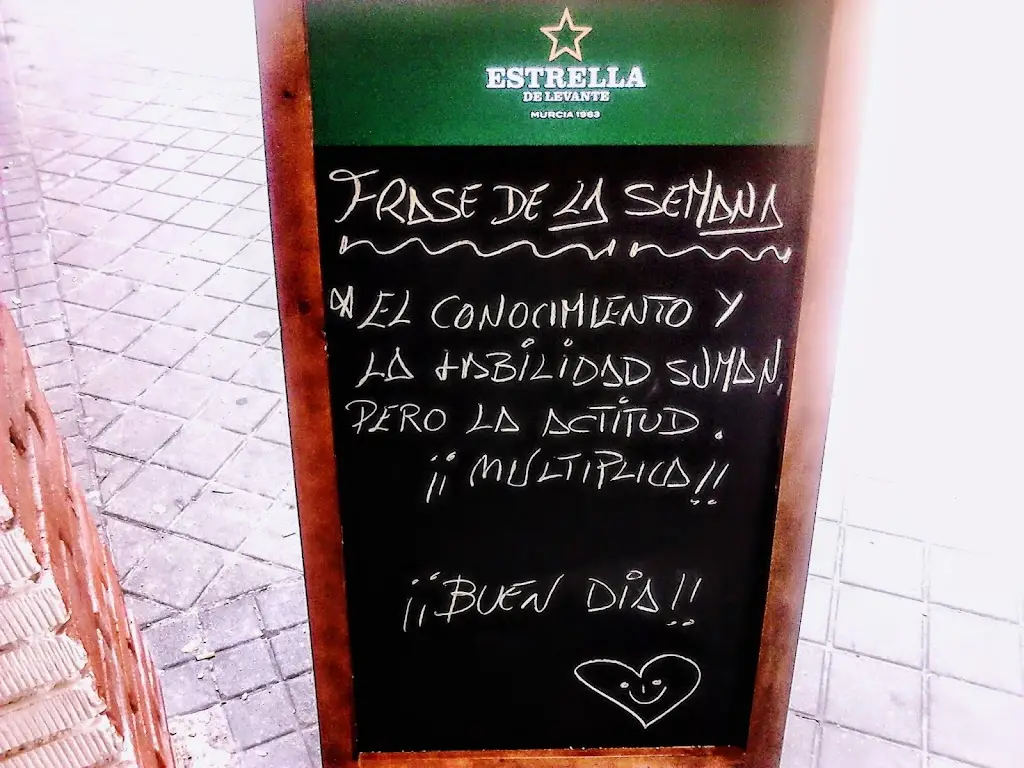 ESTRELLA
DE LEVANTE
MURCIA 1963
FRASE DE LA SEMANA
EL CONOCIMIENTO Y
LA HABILIDAD SUMAN,
PERO LA ACTITUD.
¡¡MULTIPLICA!!
¡¡BUEN DIA!!